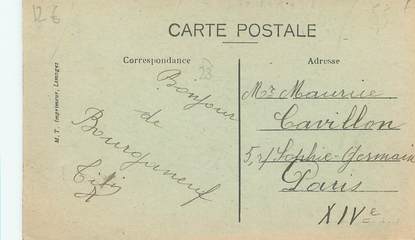 12 €
CARTE POSTALE
Correspondance
Adresse
23
M. T. Imprimeur, Limoges
Bonjour
de
Bourganeuf
Titi
Mr Maurice
Cavillon
5, r Sophie-Germain
Paris
XIVe